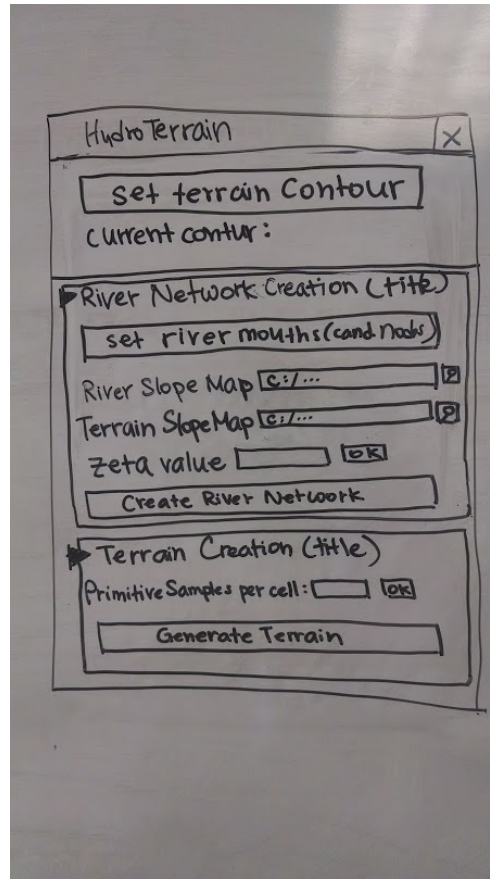 HydroTerrain X
set terrain Contour
current contur:
River Network Creation (title)
set river mouths (cand. Nodes)
River Slope Map C:/...
Terrain Slope Map C:/...
Zeta value OK
Create River Network
Terrain Creation (title)
Primitive Samples per cell: OK
Generate Terrain